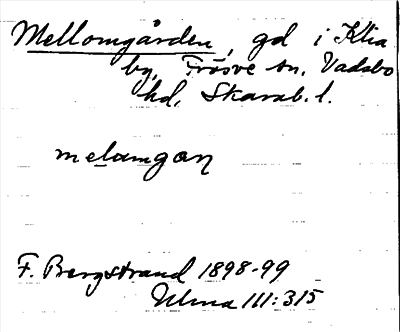 Mellomgården, gd i Klia
by, Frösve sn, Vadsbo
hd, Skarab. l.
melamgaṇ
F. Bergstrand 1898-99
Ulma 111:315